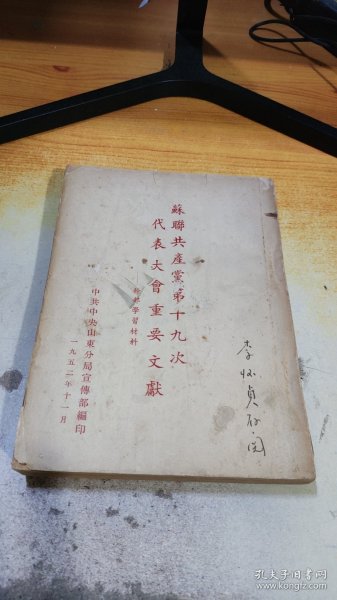 蘇聯共產黨第十九次
代表大會重要文獻
幹部學習材料
中共中央山東分局宣傳部編印
一九五二年十一月
李怀貞存阅
孔夫子旧书网